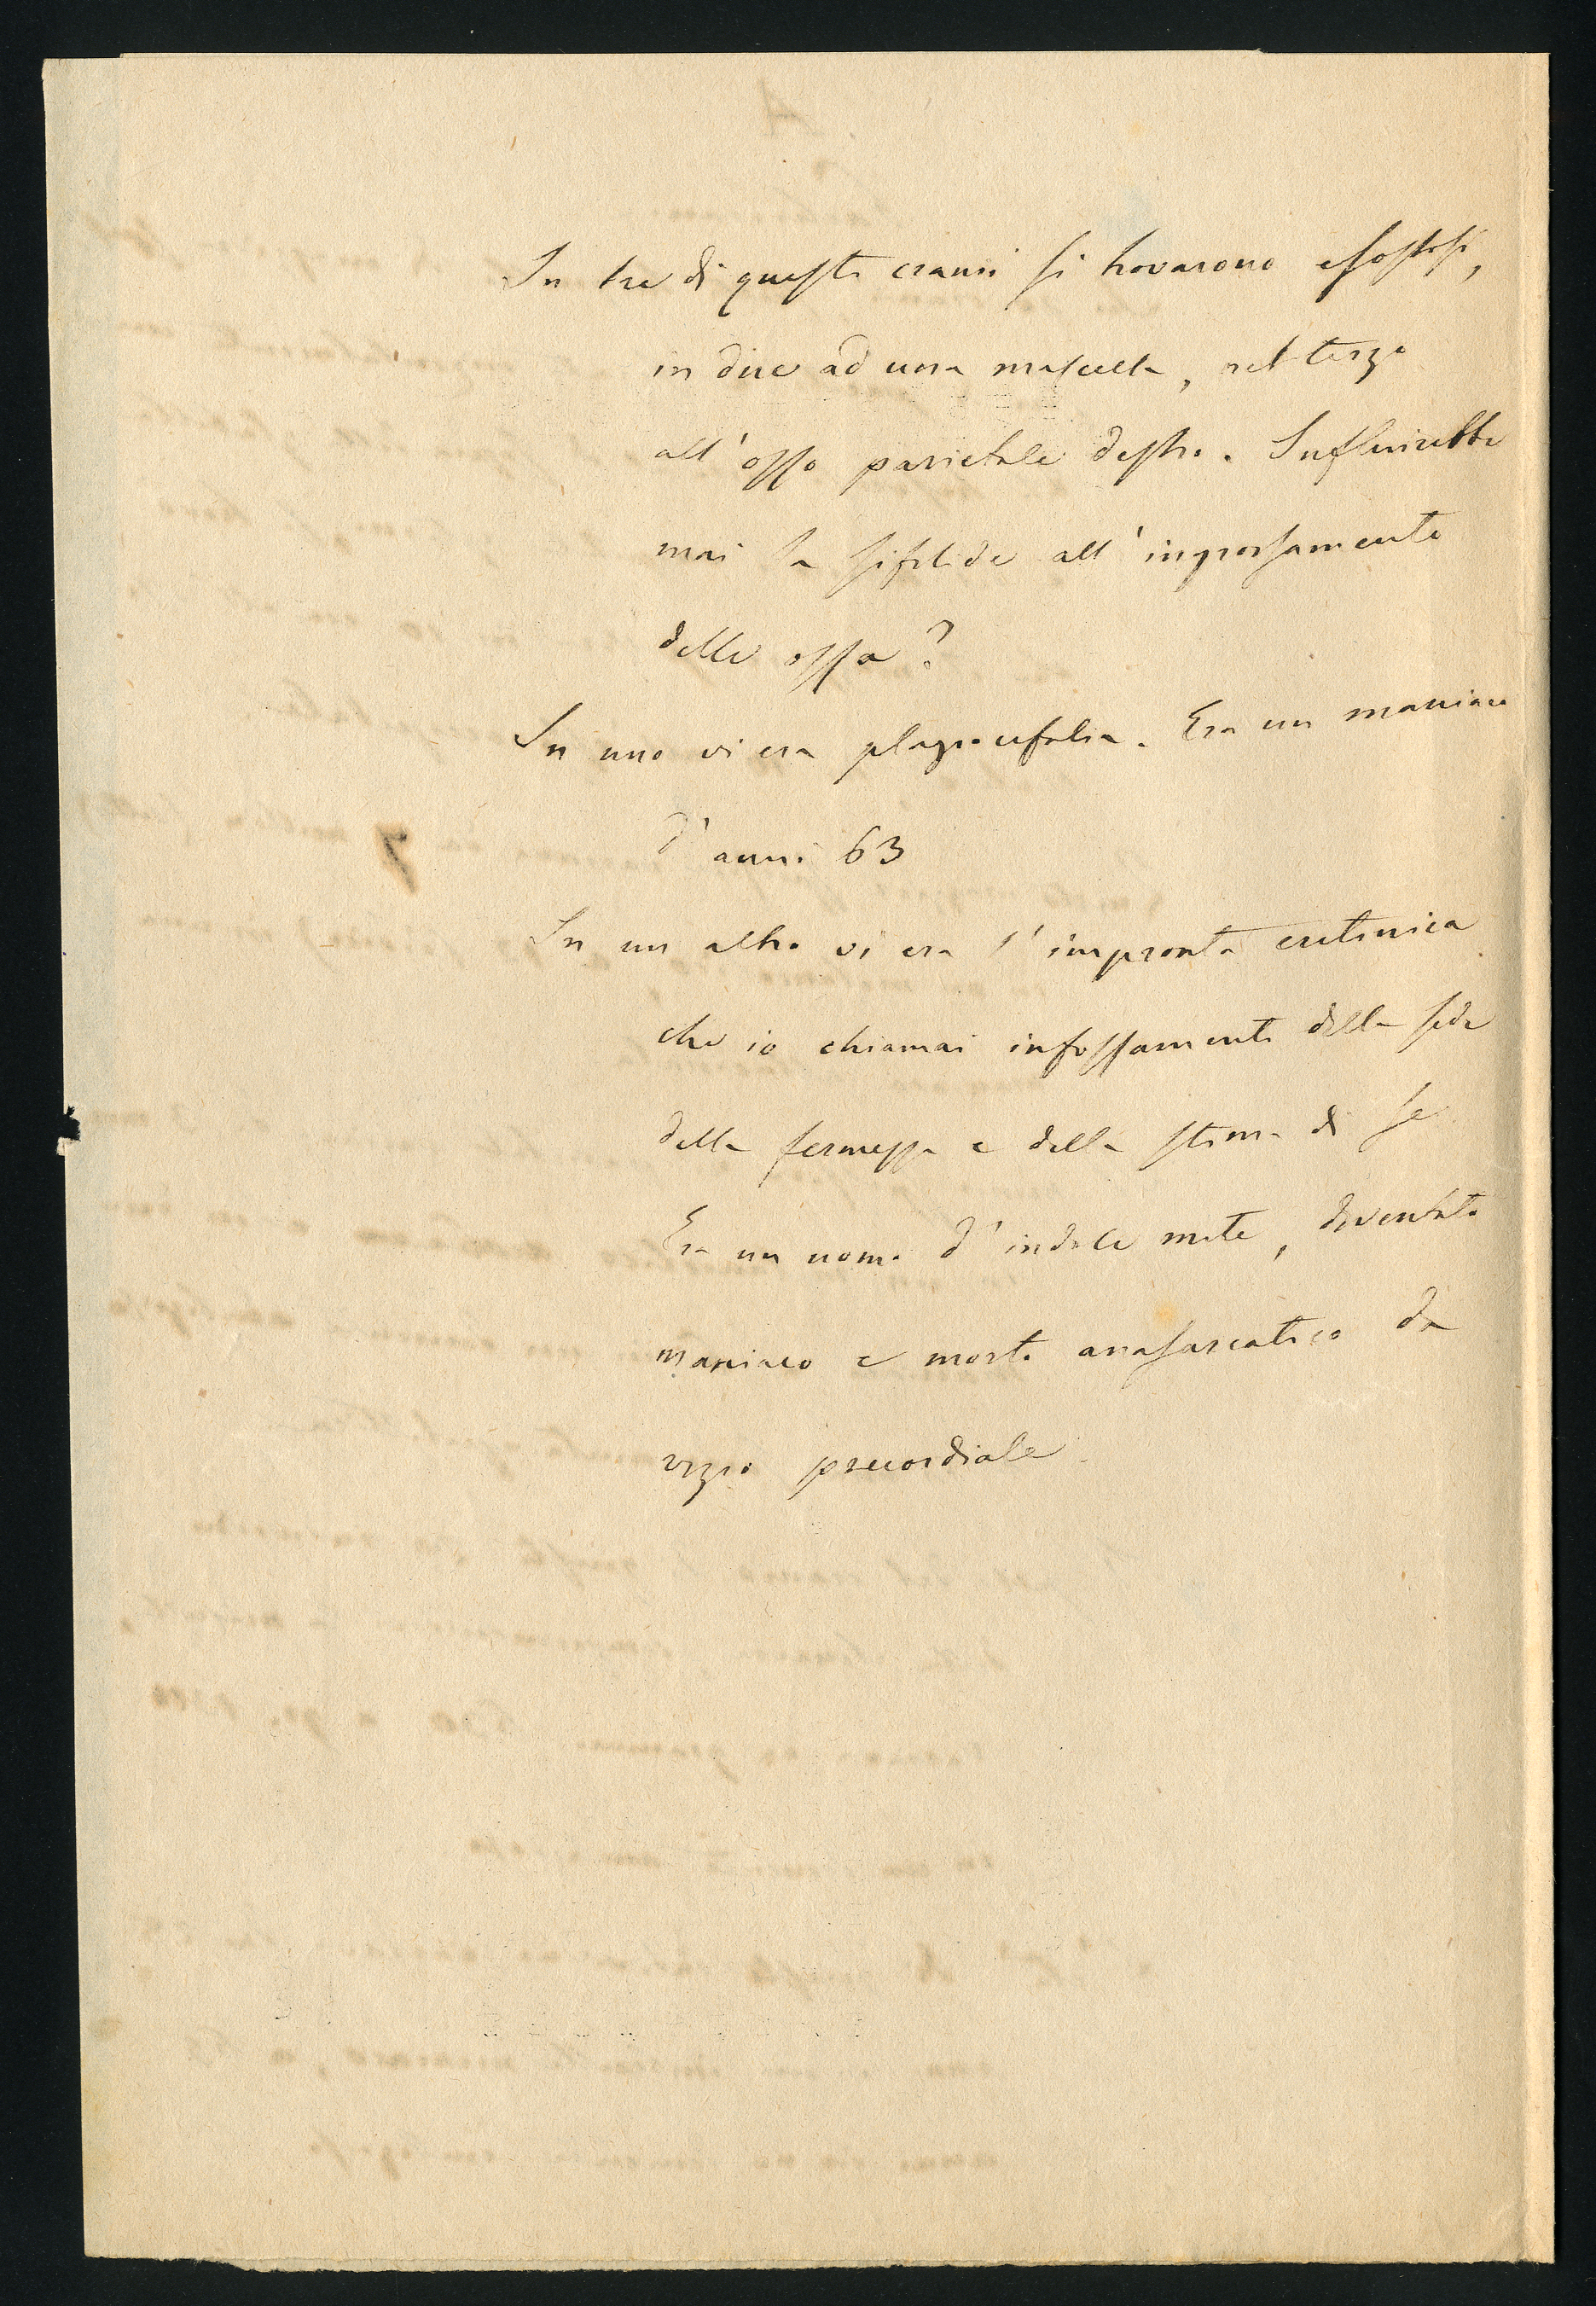 In tre di questi cranii si trovarono esostosi,
in due ad una mascella, nel terzo
all'osso parietale destro. Influirebbe
mai la sifilide all'ingrossamento
delle ossa?
In uno vi era plagiocefalia. Era un maniaco
d'anni 63
In un altro vi era l'impronta cretinica
che io chiamai infossamento della sede
della fermezza e della stima di se
Era un uomo d'indole mite, diventato
maniaco e morto anasarcatico da
vizio precordiale.